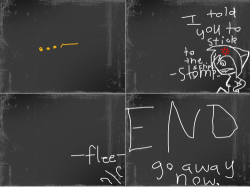 I told
you to
stick
to
the
-Stomp-
-flee-
END
go away
now.